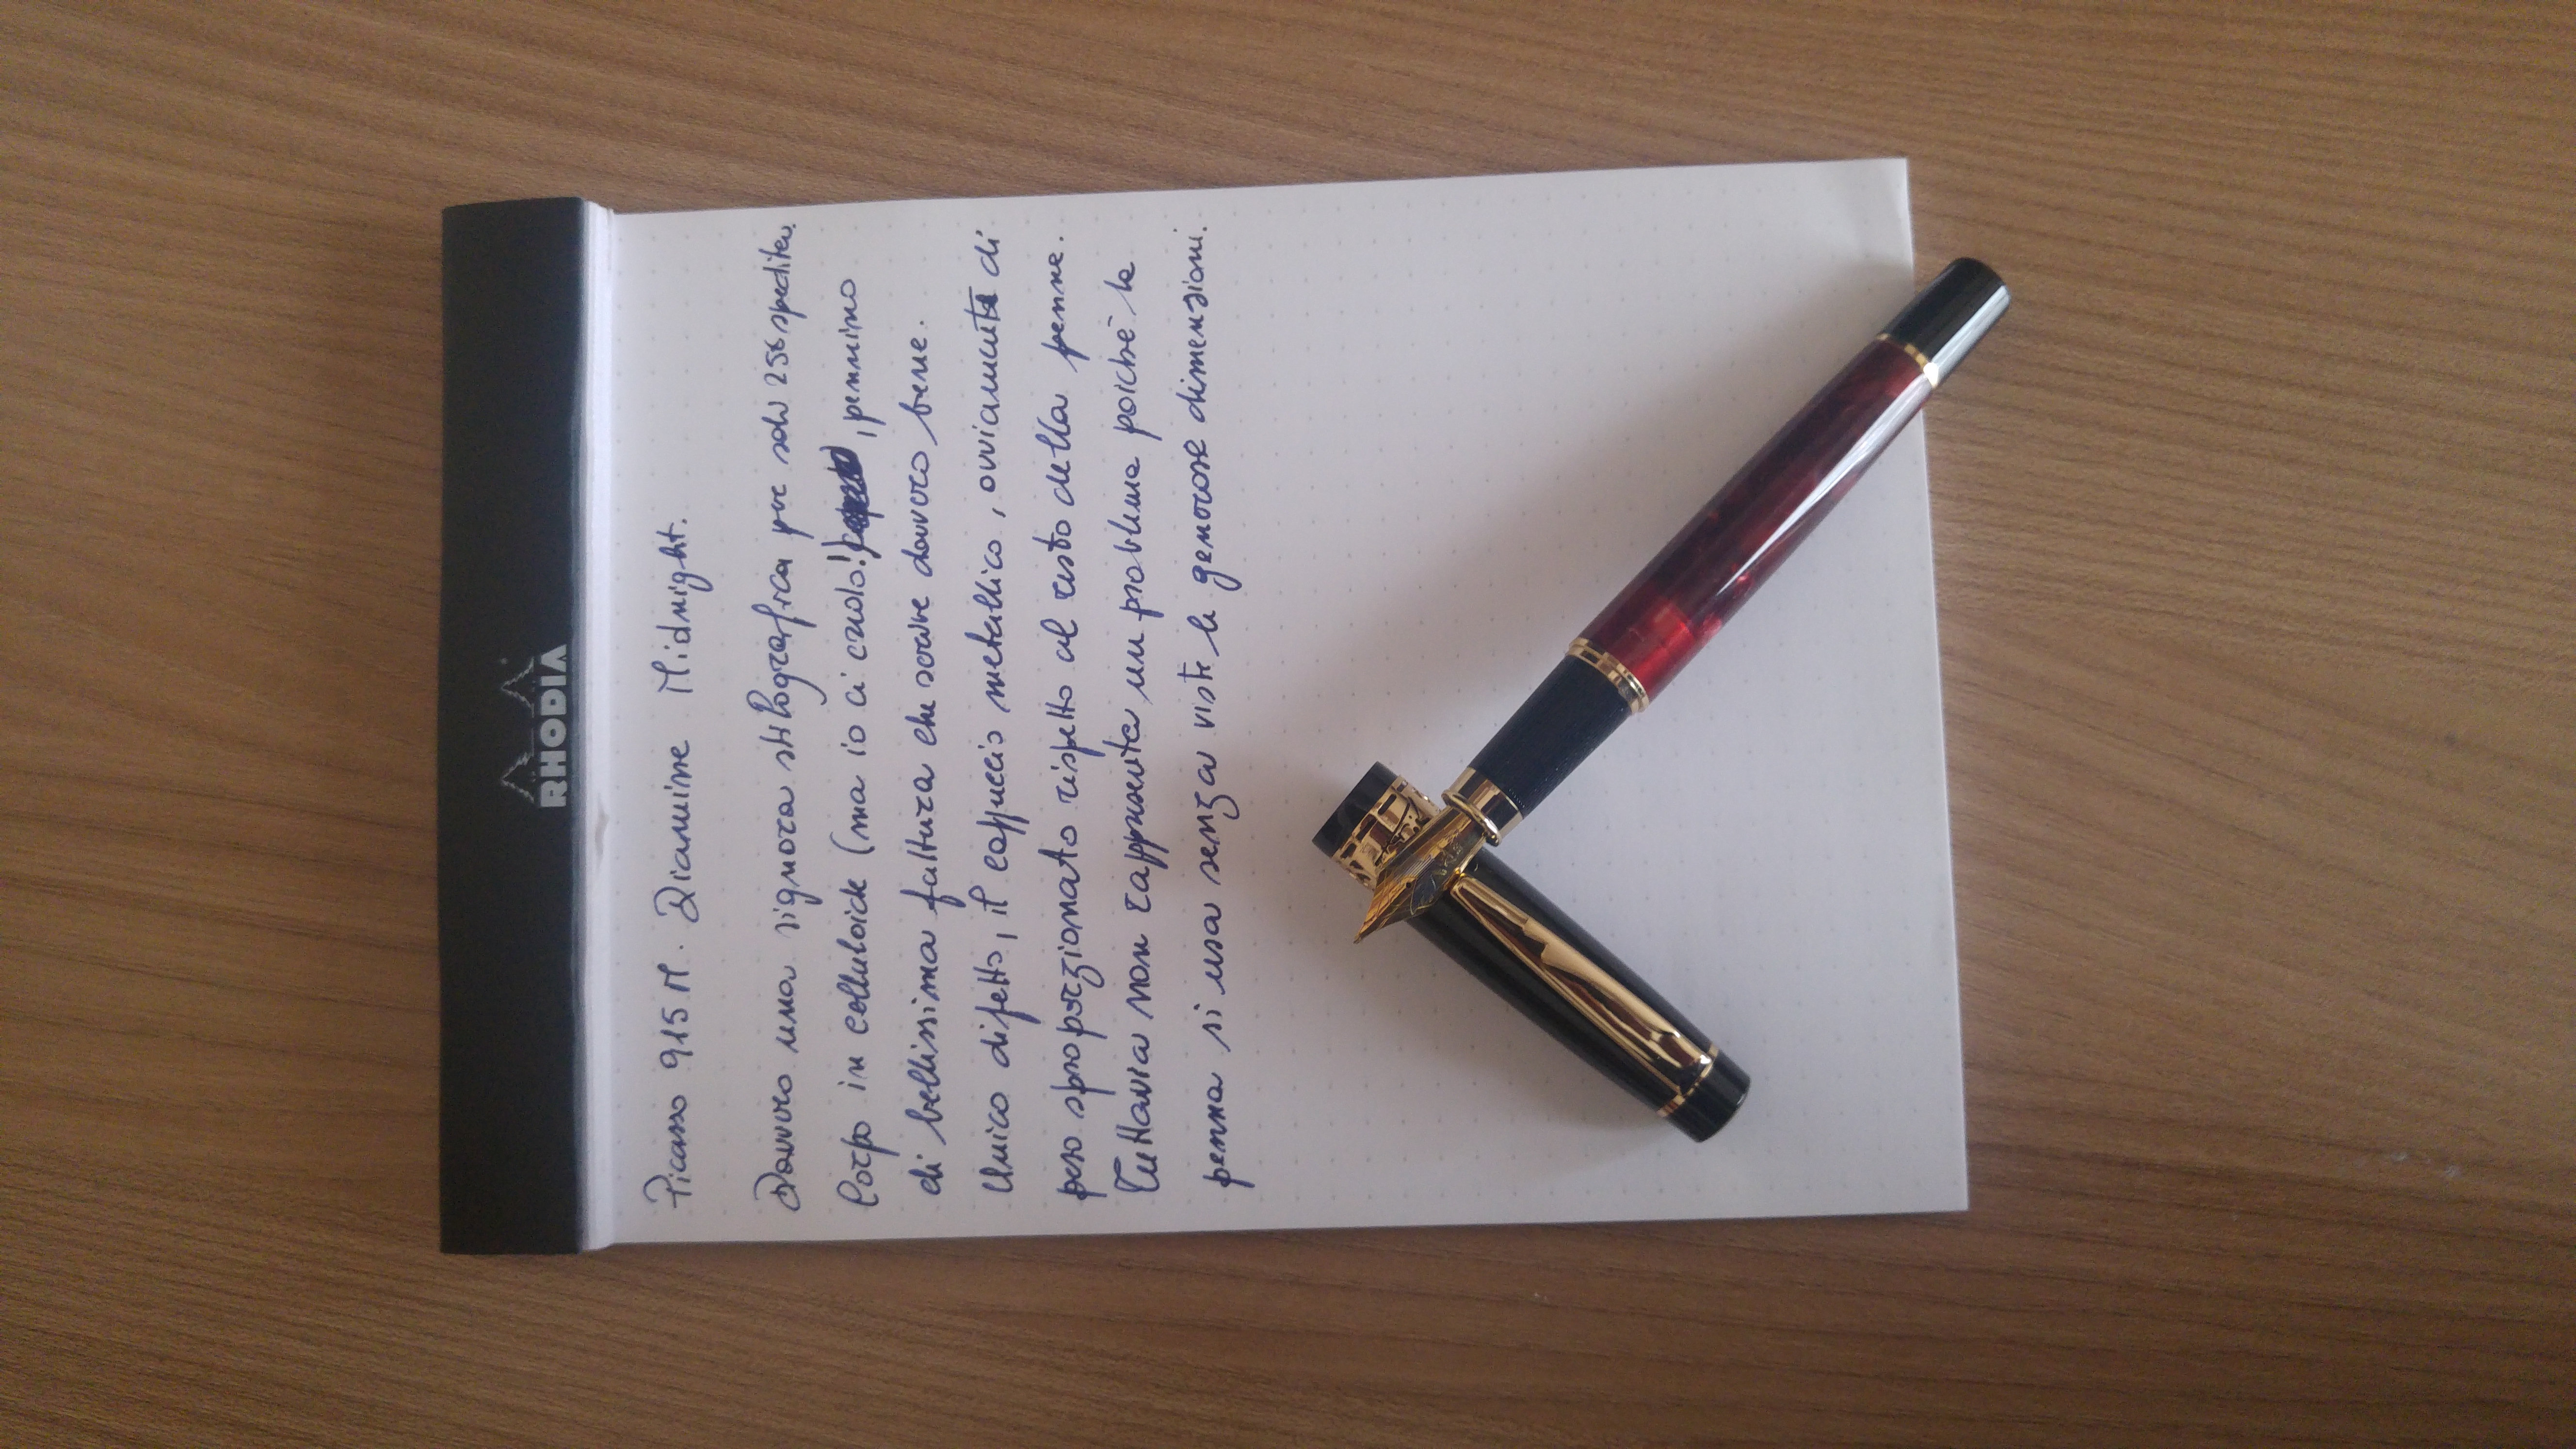 RHODIA
Picasso 915 M. Diamine Midnight.
Davvero una signora stilografica per soli 25€ spedita.
Corpo in celluloide (ma io ci credo!) , pennino
di bellissima fattura che scrive davvero bene.
Unico difetto, il cappuccio metallico, ovviamente di
peso sproporzionato rispetto al resto della penna.
Tuttavia non rappresenta un problema poiché la
penna si usa senza viste le generose dimensioni.